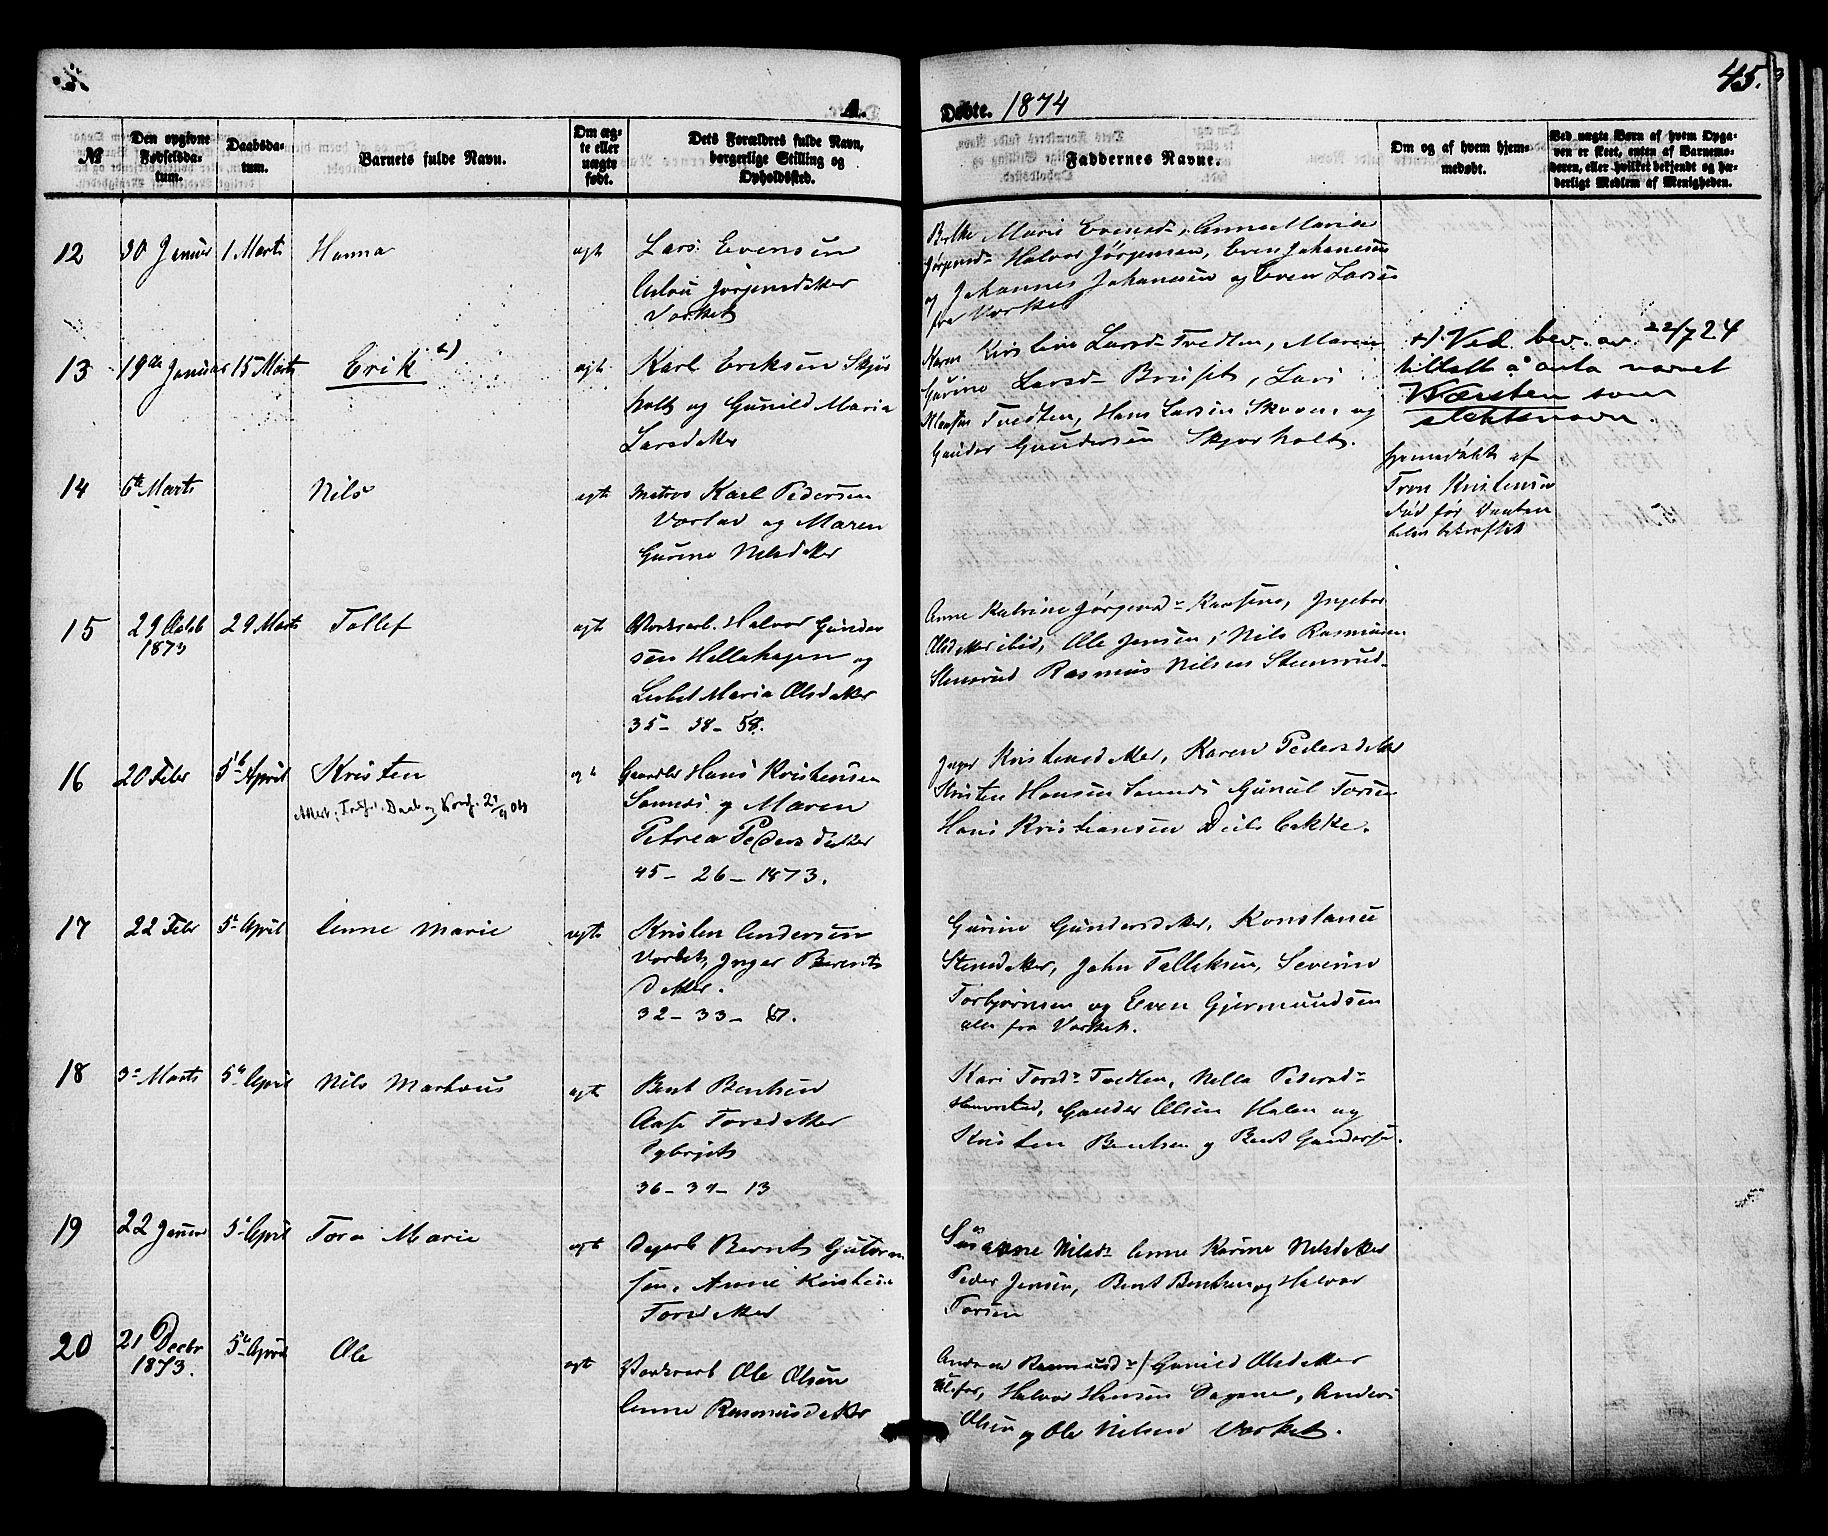 45.
A.
Døbte. 1874
№
Den opgivne Fødselsda- tum.
Daabsda- tum.
Barnets fulde Navn.
Om æg- te eller uægte født.
Dets Forældres fulde Navn, borgerlige Stilling og Opholdssted.
Faddernes Navne.
Om og af hvem hjem- medøbt.
Ved uægte Børn af hvem Opga- ven er skeet, enten af Barnemo- deren, eller hvilket bekjendt og hæ- derligt Medlem af Menigheden.
12 30 Januar 1 Marts Hanna ægte
Lars Evensen
Jørgensdatter
Værket
Marie Evensd. Anne Marie
Jørgensd. Halvor Jørgensen, Even Johanesen
og Johannes Johanesen og Even Larsen
fra Værket
13 19de Januar 15 Marts Erik +) ægte
Karl Eriksen Skjør-
holt og Gunild Maria
Larsdatter
Karen Kirstine Larsd. Tvedten, Maren
Gurine Larsd. Bruset, Lars
Tvedten, Hans Larsen Skoven og
Gunder Gundersen Skjørholt.
+) Ved bev. av 22/7 24
tillatt å anta navnet
Værsten som
slektsnavn.
14 6te Marts Nils ægte
Karl Pedersen
og Maren
Gurine Nilsdatter
hjemedøbt af
Kristensen
død før Daaben
blev bekræftet
15 29 Octob 1873 29 Marts Tollef ægte
Værksarb. Halvor Gunder
sen Hellehagen og
Lisbet Maria Olsdatter
35 - 38 - 58.
Anne Katrine Jørgensd. Ingebor
Olsdatter ibid, Ole Jensen, Nils Rasmusen
Stensrud Rasmus Nilsen Stensrud
16 20 Febr 5te April Kristen ægt
Attest; Daab og 21/9 04
Gaardbr Hans Kristensen
Sannes og Maren
Petrea Pedersdatter
45 - 26 - 1873.
Inger Kristensdatter, Karen Pedersdatter
Kristen Hansen Sannes Gunul Torsen
Hans Kristiansen Dælsbakke.
17 22 Febr 5te April Anne Marie ægte
Kristen Andersen
Værket, Inger Bernts
Datter.
32 - 33 - 67.
Gurine Gundersdatter, Konstance
Stensdatter, John Tellefsen, Severin
Torbjørnsen og Even Gjermundsen
alle fra Værket.
18 3de Marts 5te April Nils Markus ægte
Bent Bentsen
Aase Torsdatter
36 - 37 - 13
Kari Torsd. Tvedten, Nella Pedersd.
Gunder Olsen Halen og
Kristen Bentsen og Bent Gundersen.
19 22 Januar 5te April Tora Marie ægte
Bernt Gutorm
sen, Anne Kirstine
Torsdatter
Susanne Nilsd. Anne Karine Nilsdatter
Peder Jensen, Bent Bentsen og Halvor
Torsen
20 21 Decbr 1873. 5te April Ole ægte
Værksarb Ole Olsen
Anne Rasmusdatter
Andrea Rasmusd. Gunild Olsdatter
Ulefos, Halvor Hansen Sagene, Anders
Olsen og Ole Nilsen Værket.